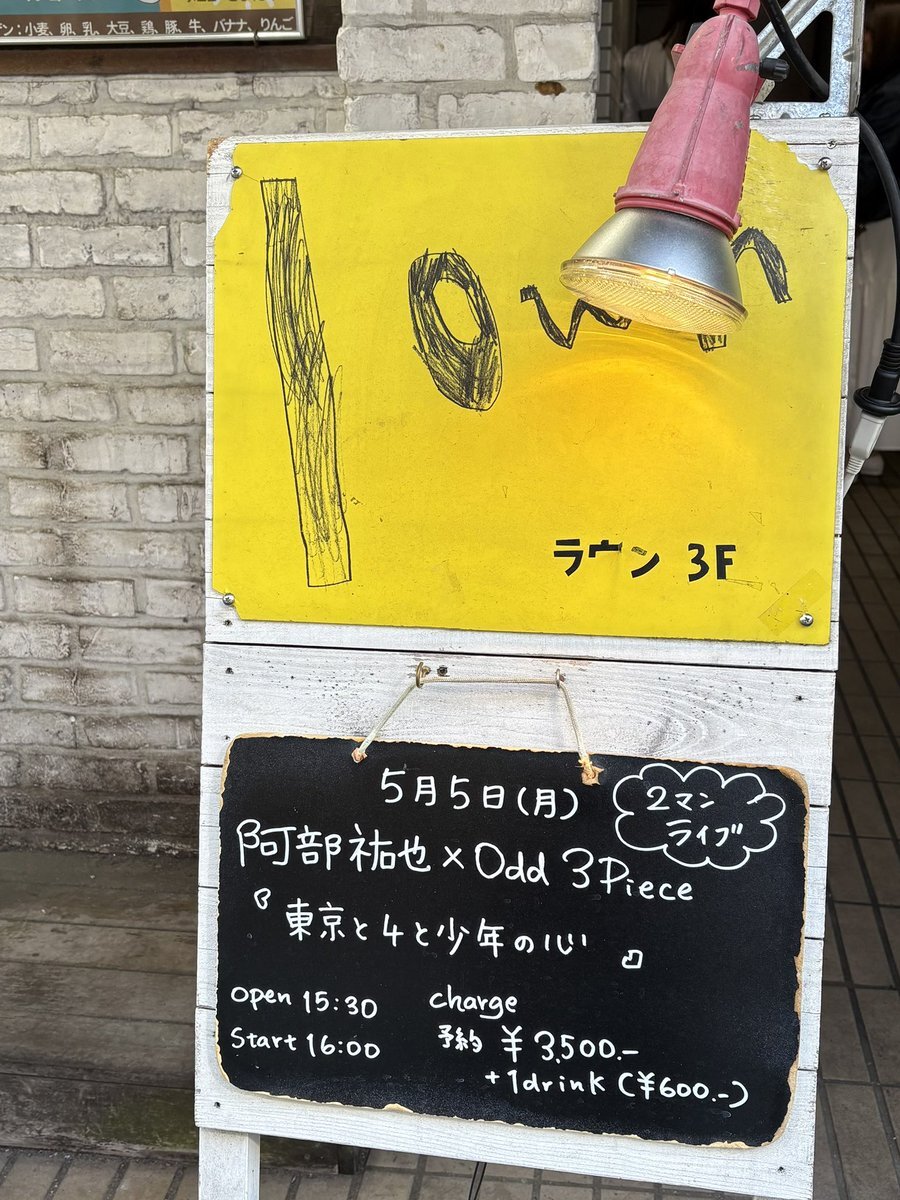 ン：小麦、卵、乳、大豆、鶏、豚、牛、バナナ、りんご
lown
ラウン 3F
5月5日(月)
2マン
ライブ
阿部祐也×Odd 3Piece
『東京と4と少年の心』
open 15:30
Start 16:00
charge
予約 ¥3,500.-
+1drink (¥600.-)